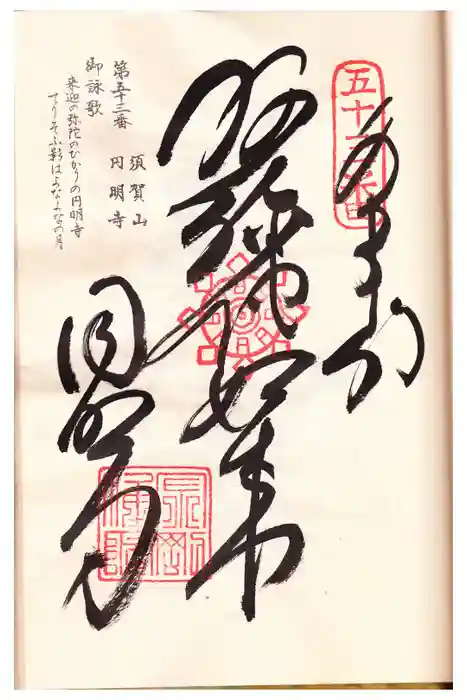 五十三番
奉納
阿弥陀如来
円明寺
第五十三番 須賀山 円明寺
御詠歌
来迎の弥陀のひかりの円明寺
てりそふ影はよなよなの月